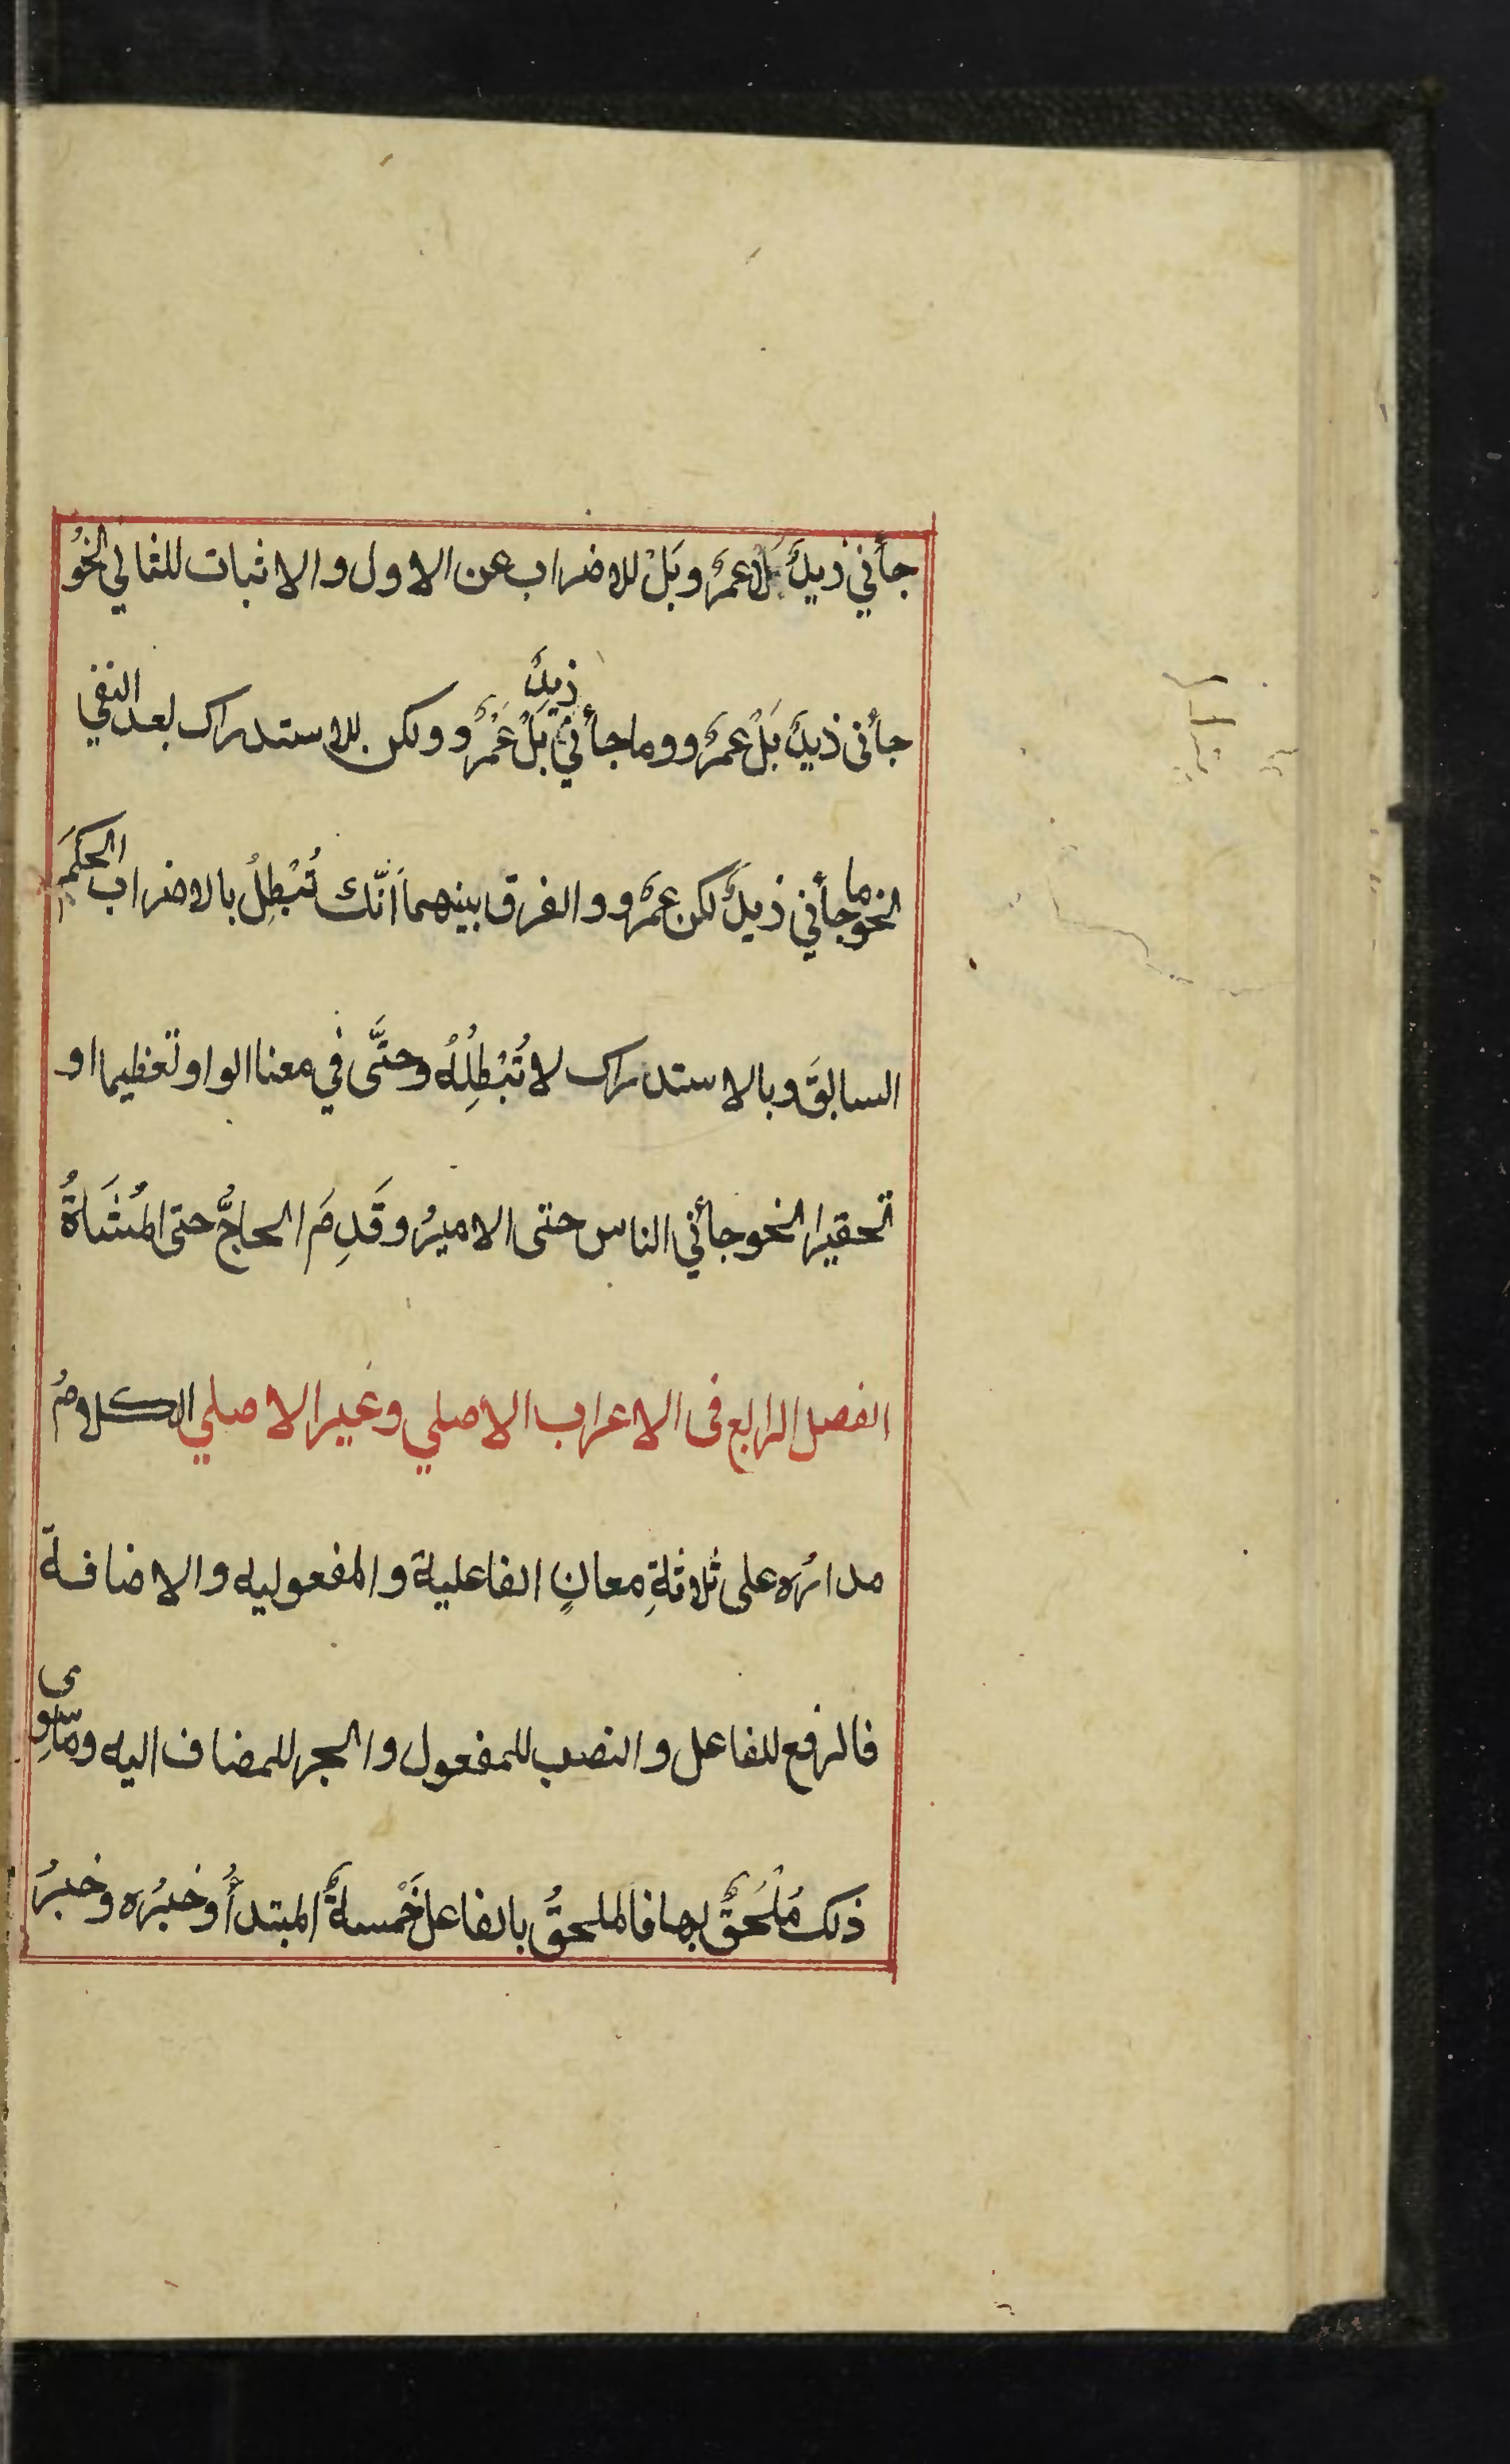 جأني زيدٌ بل عمرٌ وبَلْ للاضراب عن الاول والاثبات للثاني نحوُ
جأنى زيدٌ بَلْ عمرٌو وما جأني زيدٌ بَلْ عَمْرٌو ولكن للاستدراك بعد النفي
نحو ما جأني زيدٌ لكن عمرٌو والفرق بينهما اَنّك تُبْطِلُ بالاضراب الحكمَ
السابقَ وبالاستدراك لا تُبْطِلُهُ وحتَّى في معنا الواو تعظيما او
تحقيرا نحو جأني الناس حتى الاميرُ وقَدِمَ الحاجُّ حتى المُشَاةُ
الفصل الرابع فى الاعراب الاصلي وغير الاصلي الكلامُ
مدارُه على ثلاثةِ معانٍ الفاعلية والمفعوليه والاضافة
فالرفع للفاعل والنصب للمفعول والجر للمضاف اليه وما سِوى
ذلك مُلْحَقٌ بها فالملحقُ بالفاعل خَمْسةٌ المبتدأُ وخبرُه وخبرُ